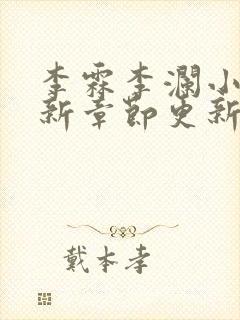 李霖李澜小
新章节更新
戴本孝